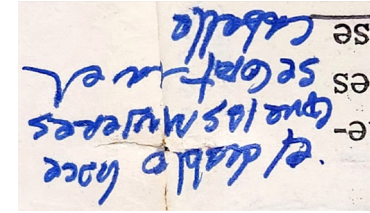 el diablo hace
que las mujeres
se el
cabello
es
se